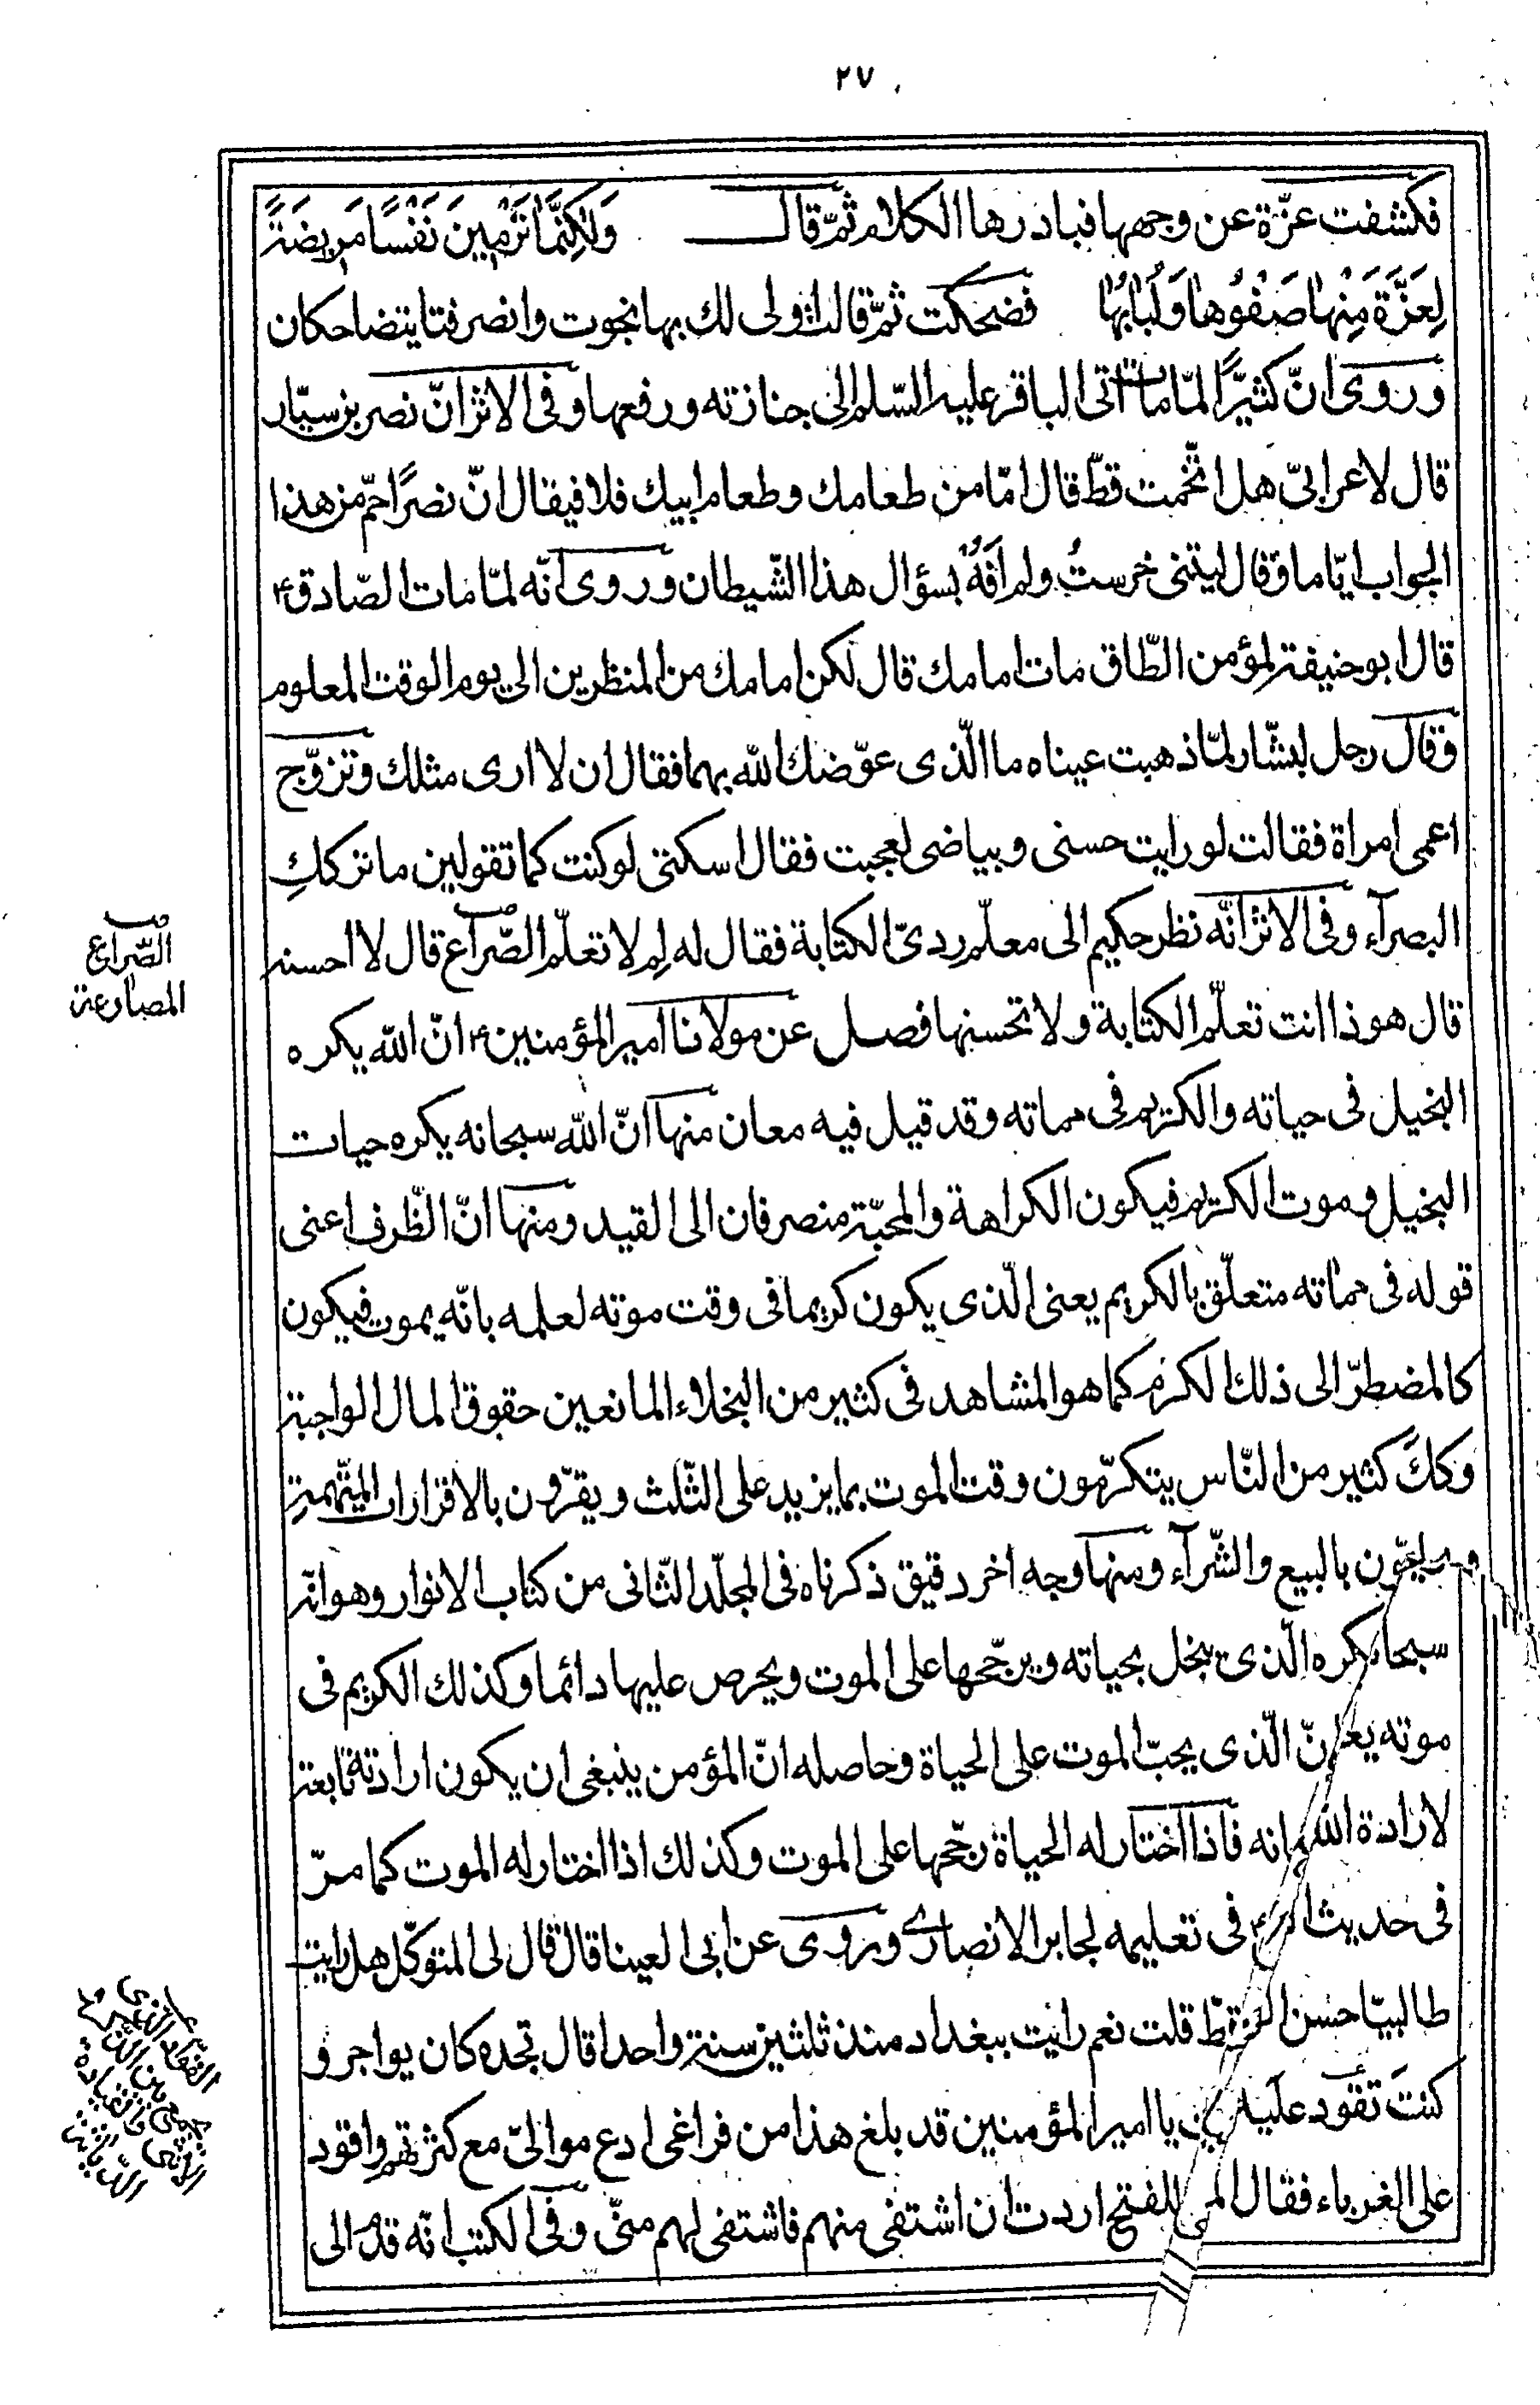 ٢٧
فكشفت عزّة عن وجهها فبادرها الكلام ثمّ قال وَلٰكِنَّمٰا تَرْمِينَ نَفْسًا مَرِيضَةً
لِعَزَّةَ مِنْهٰا صَفْوُهٰا وَلُبٰابُهٰا فضحكت ثمّ قالت اولى لك بها نجوت وانصرفتا يتضاحكان
وروى انّ كثيّرًا لمّا مات اتى الباقر عليه السّلم الى جنازته ورفعها وفى الاثر انّ نصر بن سيّار
قال لاعرابىّ هل اتّخمت قطّ قال امّا من طعامك وطعام ابيك فلا فيقال انّ نصرًا حمّ من هذا
الجواب ايّاما وقال ليتنى خرستُ ولم افَهُ بسؤال هذا الشّيطان وروى انّه لمّا مات الصّادق ع
قال ابو حنيفة لمؤمن الطّاق مات امامك قال لكن امامك من المنظرين الى يوم الوقت المعلوم
وقال رجل لبشّار لمّا ذهبت عيناه ما الّذى عوّضك الله بهما فقال ان لا ارى مثلك وتزوّج
اعمى امراة فقالت لو رايت حسنى وبياضى لعجبت فقال اسكتى لو كنت كما تقولين ما ترككِ
البصرآء وفى الاثر انّه نظر حكيم الى معلّم ردىّ الكتابة فقال له لِم لا تعلّم الصّراع قال لا احسنه
قال هو ذا انت تعلّم الكتابة ولا تحسنها فصل عن مولانا امير المؤمنين ع انّ الله يكره
البخيل فى حياته والكريم فى مماته وقد قيل فيه معان منها انّ الله سبحانه يكره حيات
البخيل وموت الكريم فيكون الكراهة والمحبّة منصرفان الى القيد ومنها انّ الظّرف اعنى
قوله فى مماته متعلّق بالكريم يعنى الّذى يكون كريما فى وقت موته لعلمه بانّه يموت فيكون
كالمضطرّ الى ذلك الكرم كما هو المشاهد فى كثير من البخلاء المانعين حقوق المال الواجبة
وكك كثير من النّاس يتكرّمون وقت الموت بما يزيد على الثّلث ويقرّون بالاقرارات المتّهمة
بالبيع والشّرآء ومنها وجه اخر دقيق ذكرناه فى المجلّد الثّانى من كتاب الانوار وهو انّه
يكره الّذى يبخل بحياته ويرجّحها على الموت ويحرص عليها دائما وكذلك الكريم فى
موته الّذى يحبّ الموت على الحياة وحاصله انّ المؤمن ينبغى ان يكون ارادته تابعة
لارادة الله فاذا اختار له الحياة رجّحها على الموت وكذلك اذا اختار له الموت كما مرّ
فى حديث فى تعليمه لجابر الانصارى وروى عن ابى العينا قال قال لى المتوكّل هل رايت
طالبيّا حسن قطّ قلت نعم رايت ببغداد منذ ثلثين سنة واحدا قال تجده كان يواجر و
كنتَ تقود عليه يا امير المؤمنين قد بلغ هذا من فراغى ادع موالىّ مع كثرتهم واقود
على الغرباء فقال للفتح اردت ان اشتفى منهم فاشتفى لهم منّى وفى الكتب انّه قدم الى
الصّراع
المصارعة
القوّاد الّذى
يجمع بين الذّكر و
الانثى بالقيادة